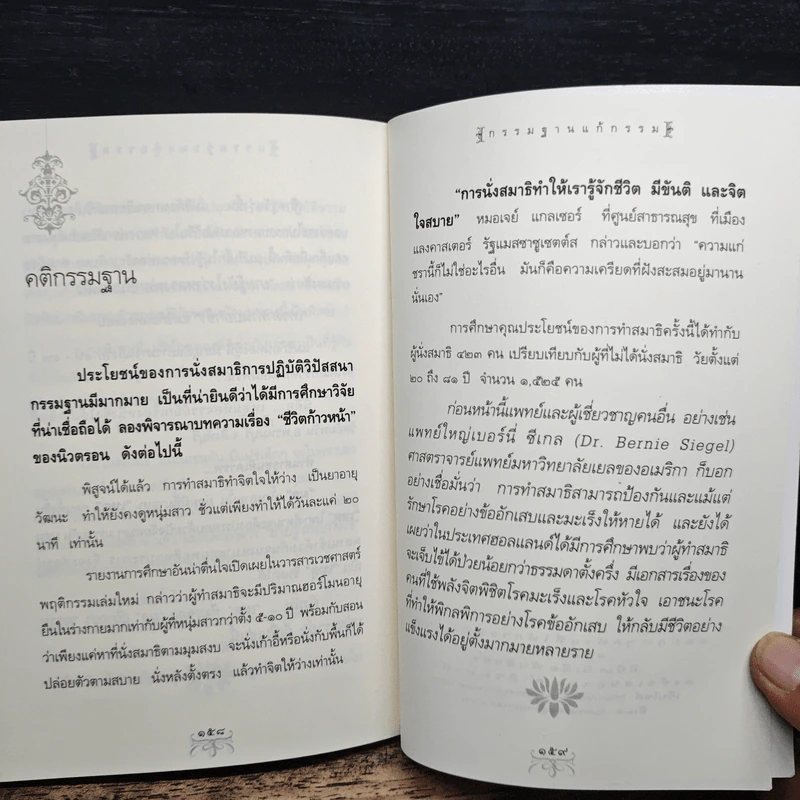 คติกรรมฐาน
ประโยชน์ของการนั่งสมาธิการปฏิบัติวิปัสสนา
กรรมฐานมีมากมาย เป็นที่น่ายินดีว่าได้มีการศึกษาวิจัย
ที่น่าเชื่อถือได้ ลองพิจารณาบทความเรื่อง “ชีวิตก้าวหน้า”
ของนิวตรอน ดังต่อไปนี้
พิสูจน์ได้แล้ว การทำสมาธิทำจิตใจให้ว่าง เป็นยาอายุ
วัฒนะ ทำให้ยังคงดูหนุ่มสาว ชั่วแต่เพียงทำให้ได้วันละแค่ ๒๐
นาที เท่านั้น
รายงานการศึกษาอันน่าตื่นใจเปิดเผยในวารสารเวชศาสตร์
พฤติกรรมเล่มใหม่ กล่าวว่าผู้ทำสมาธิจะมีปริมาณฮอร์โมนอายุ
ยืนในร่างกายมากเท่ากับผู้ที่หนุ่มสาวกว่าตั้ง ๕-๑๐ ปี พร้อมกับสอน
ว่าเพียงแค่หาที่นั่งสมาธิตามมุมสงบ จะนั่งเก้าอี้หรือนั่งกับพื้นก็ได้
ปล่อยตัวตามสบาย นั่งหลังตั้งตรง แล้วทำจิตให้ว่างเท่านั้น
๑๕๘
กรรมฐานแก้กรรม
“การนั่งสมาธิทำให้เรารู้จักชีวิต มีขันติ และจิต
ใจสบาย” หมอเจย์ แกลเซอร์ ที่ศูนย์สาธารณสุข ที่เมือง
แลงคาสเตอร์ รัฐแมสซาชูเซตต์ส กล่าวและบอกว่า “ความแก่
ชรานี้ก็ไม่ใช่อะไรอื่น มันก็คือความเครียดที่ฝังสะสมอยู่มานาน
นั่นเอง”
การศึกษาคุณประโยชน์ของการทำสมาธิครั้งนี้ได้ทำกับ
ผู้นั่งสมาธิ ๔๒๓ คน เปรียบเทียบกับผู้ที่ไม่ได้นั่งสมาธิ วัยตั้งแต่
๒๐ ถึง ๘๑ ปี จำนวน ๑,๕๒๕ คน
ก่อนหน้านี้แพทย์และผู้เชี่ยวชาญคนอื่น อย่างเช่น
แพทย์ใหญ่เบอร์นี่ ซีเกล (Dr. Bernie Siegel)
ศาสตราจารย์แพทย์มหาวิทยาลัยเยลของอเมริกา ก็บอก
อย่างเชื่อมั่นว่า การทำสมาธิสามารถป้องกันและแม้แต่
รักษาโรคอย่างข้ออักเสบและมะเร็งให้หายได้ และยังได้
เผยว่าในประเทศฮอลแลนด์ได้มีการศึกษาพบว่าผู้ทำสมาธิ
จะเจ็บไข้ได้ป่วยน้อยกว่าธรรมดาตั้งครึ่ง มีเอกสารเรื่องของ
คนที่ใช้พลังจิตพิชิตโรคมะเร็งและโรคหัวใจ เอาชนะโรค
ที่ทำให้พิกลพิการอย่างโรคข้ออักเสบ ให้กลับมีชีวิตอย่าง
แข็งแรงได้อยู่ตั้งมากมายหลายราย
๑๕๙